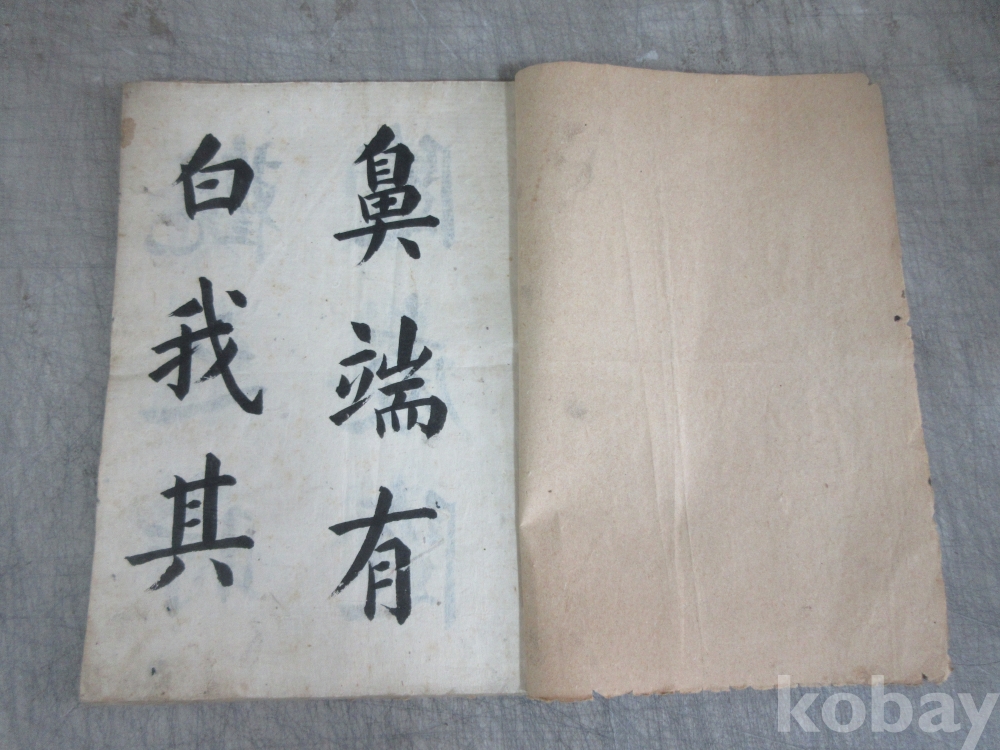 鼻端有
白我其
kobay